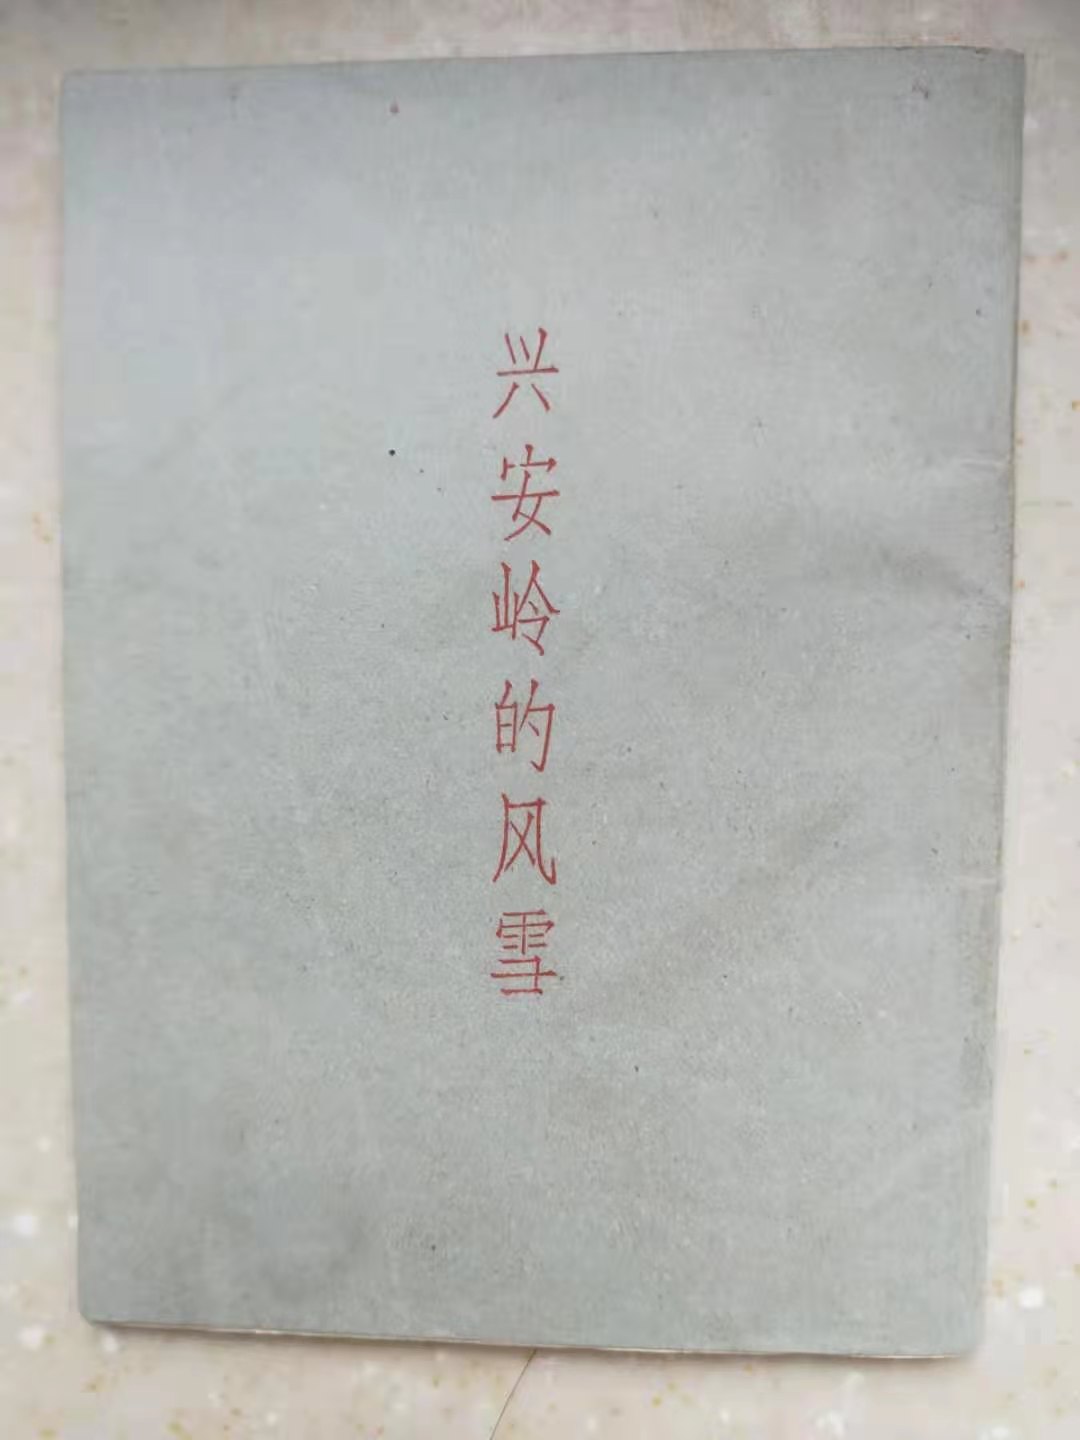 兴安岭的风雪